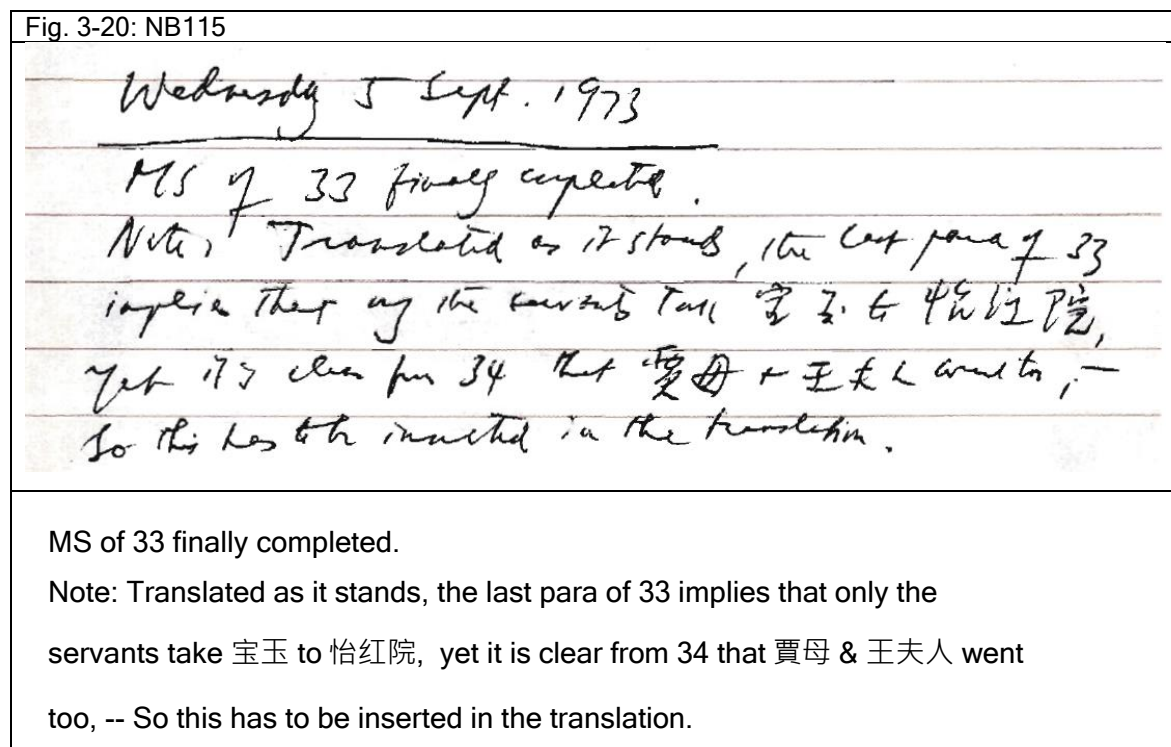 Fig. 3-20: NB115
Wednesday 5 Sept. 1973
MS of 33 finally completed.
Note: Translated as it stands, the last para of 33
implies that only the servants take 宝玉 to 怡红院,
yet it is clear from 34 that 賈母 + 王夫人 went too, —
So this has to be inserted in the translation.
MS of 33 finally completed.
Note: Translated as it stands, the last para of 33 implies that only the
servants take 宝玉 to 怡红院, yet it is clear from 34 that 賈母 & 王夫人 went
too, -- So this has to be inserted in the translation.